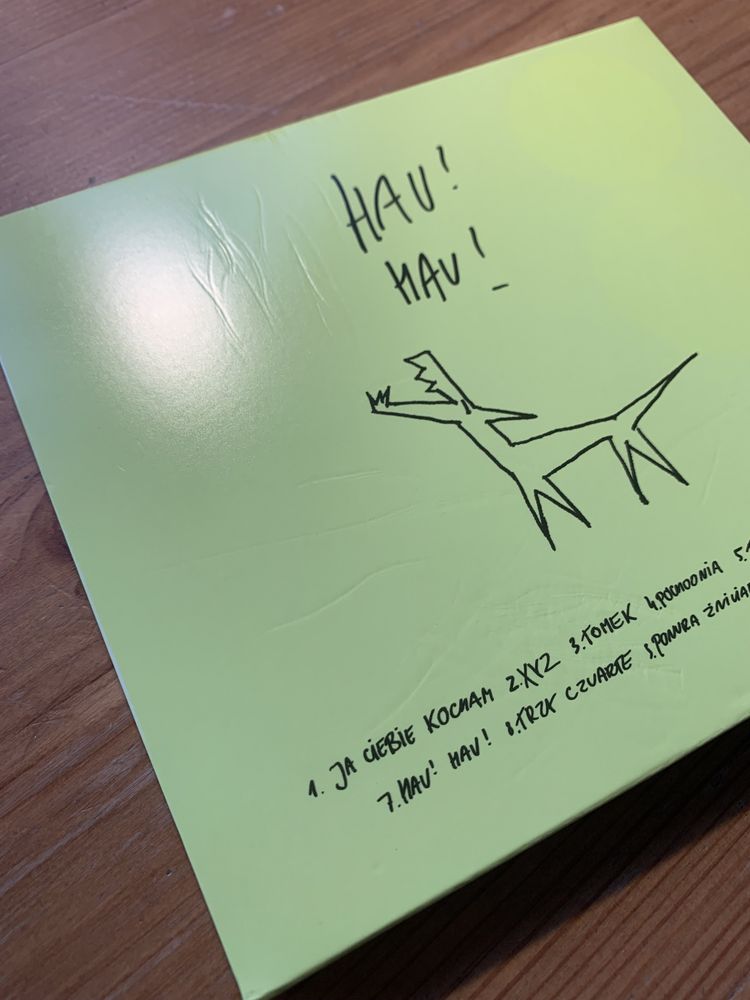 HAU!
HAU!
1. JA CIEBIE KOCHAM 2. XYZ 3. TOMEK 4. POCHODNIA 5.
7. HAU! HAU! 8. TRZY CZWARTE 9. PONURA